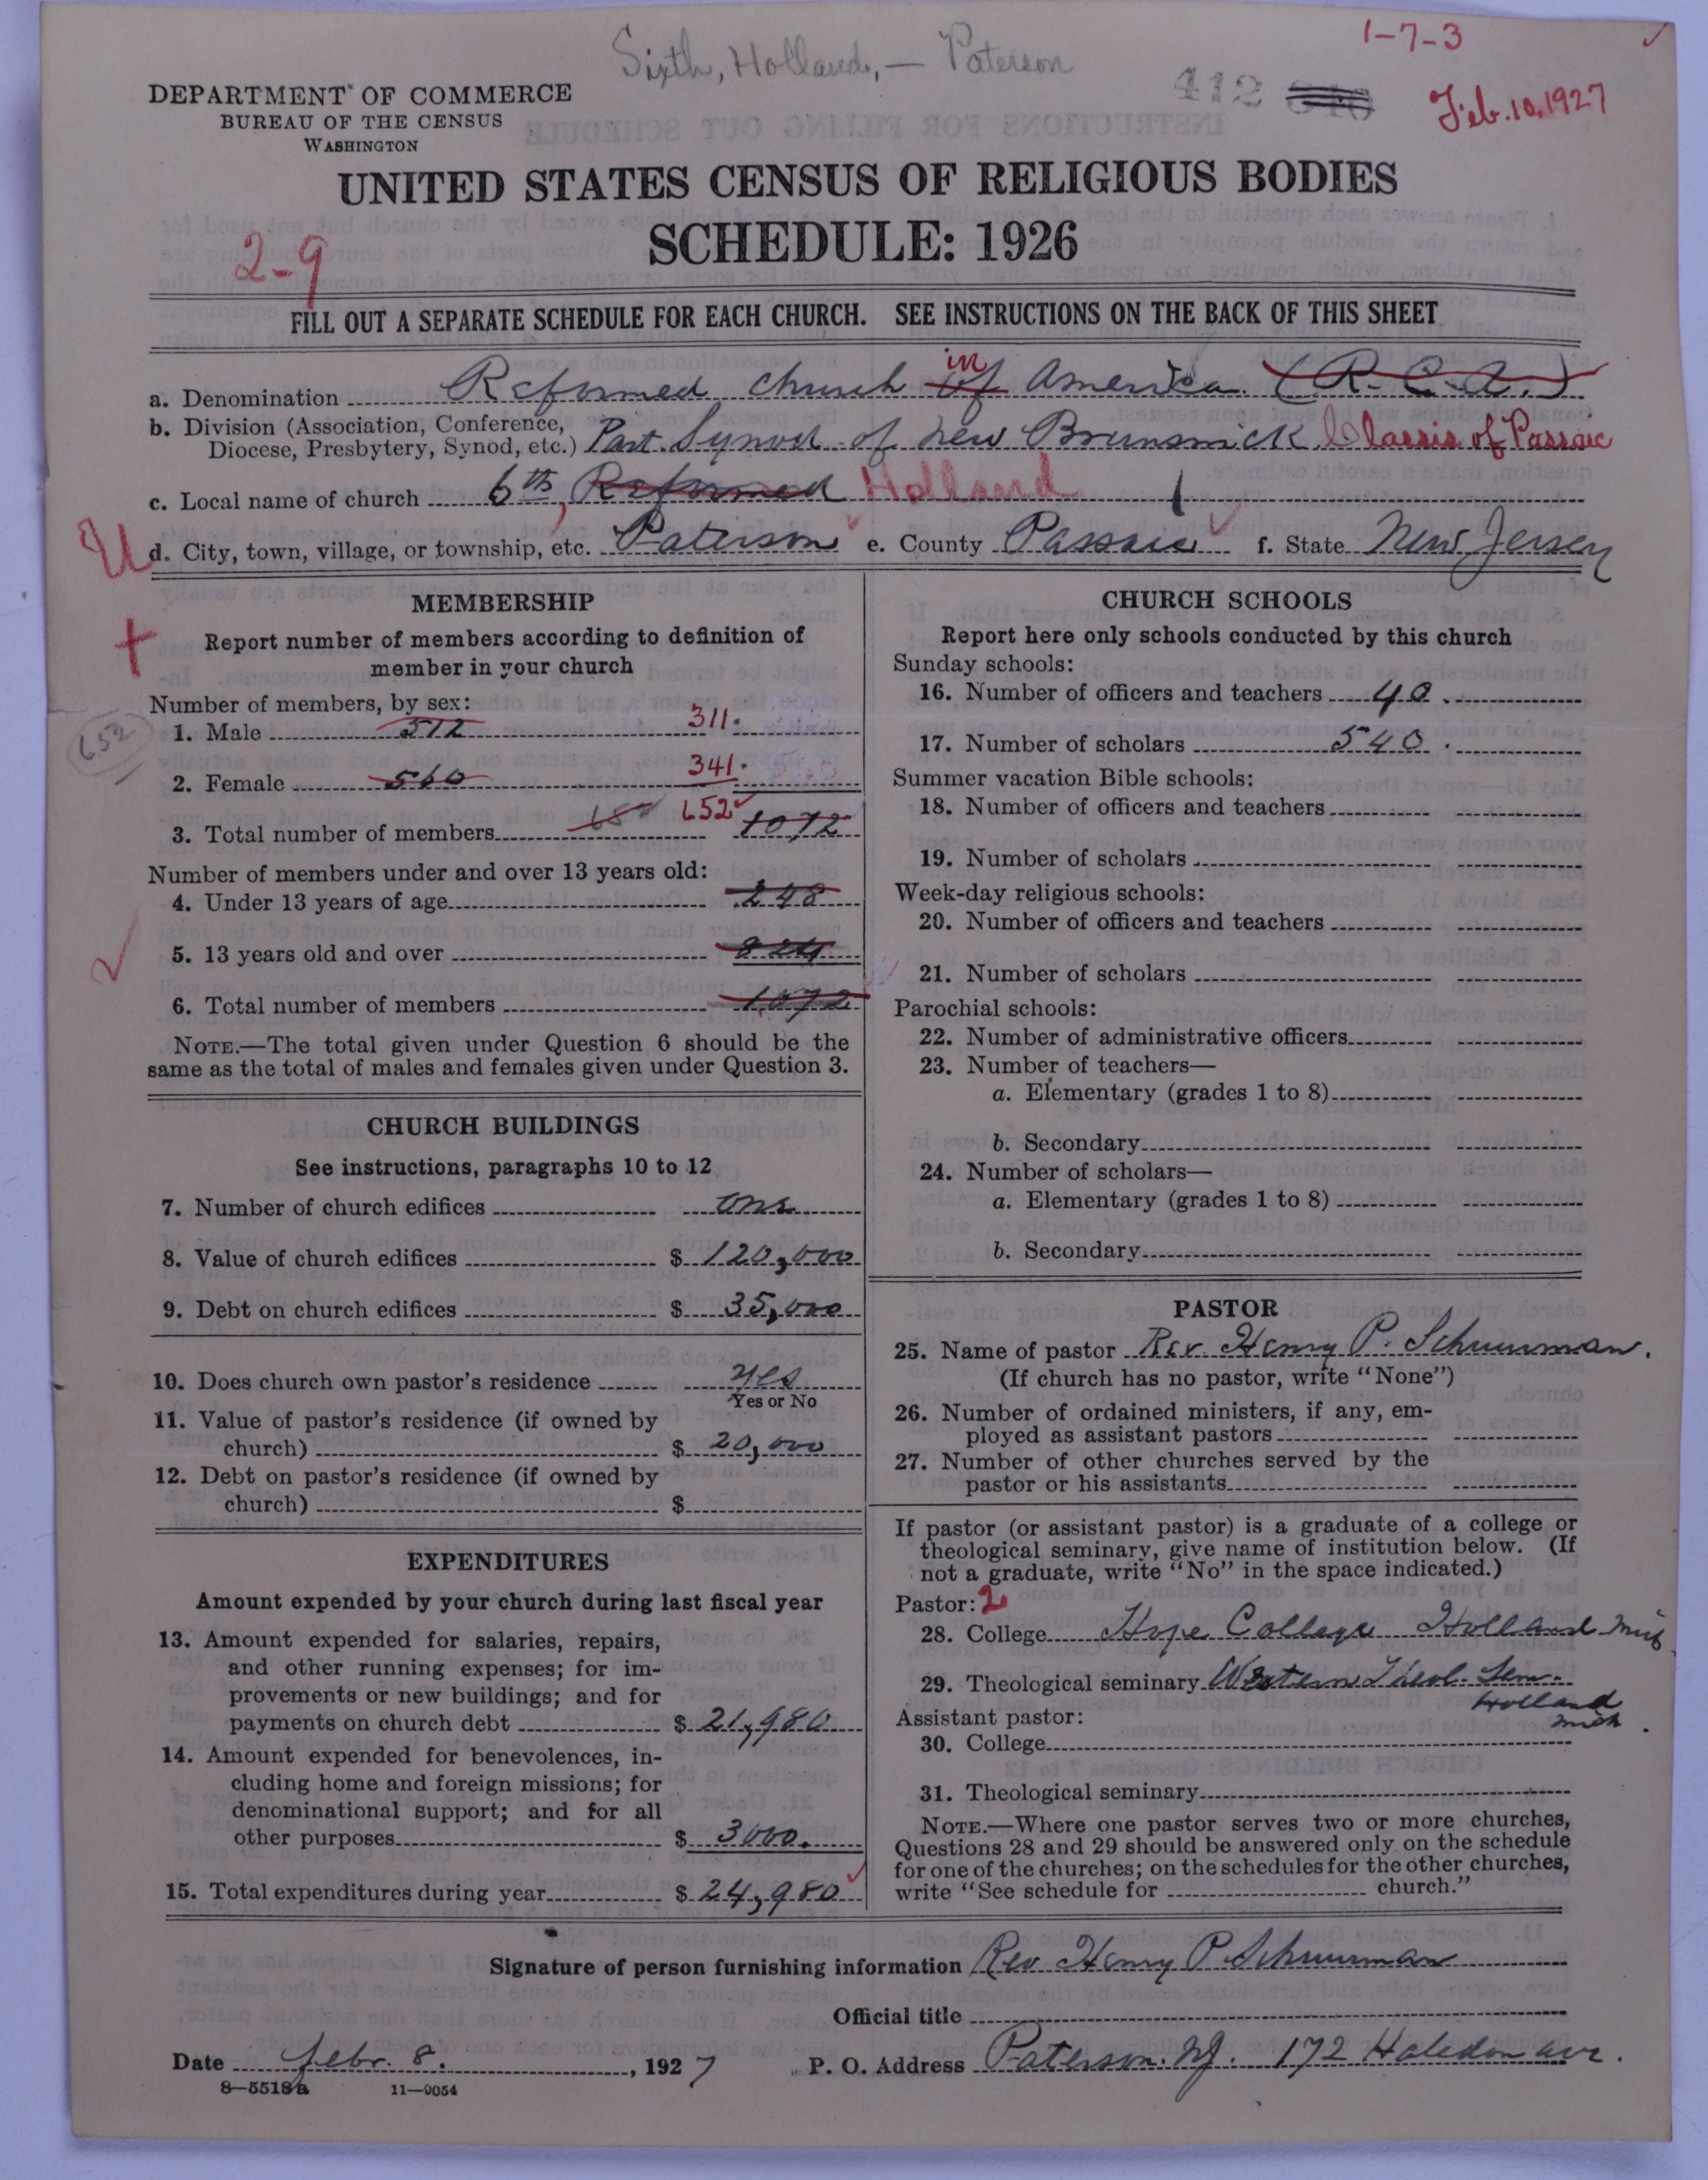 Sixth, Holland, — Paterson
1-7-3
412
Feb. 10, 1927
DEPARTMENT OF COMMERCE
BUREAU OF THE CENSUS
WASHINGTON
UNITED STATES CENSUS OF RELIGIOUS BODIES
SCHEDULE: 1926
2-9
FILL OUT A SEPARATE SCHEDULE FOR EACH CHURCH. SEE INSTRUCTIONS ON THE BACK OF THIS SHEET
a. Denomination Reformed church of in America. (R. C. A.)
b. Division (Association, Conference,
Diocese, Presbytery, Synod, etc.) Part. Synod of New Brunswick Classis of Passaic
c. Local name of church 6th, Reformed Holland
U
d. City, town, village, or township, etc. Paterson e. County Passaic f. State New Jersey
MEMBERSHIP
Report number of members according to definition of
member in your church
Number of members, by sex:
652
1. Male 512 311.
2. Female 560 341.
3. Total number of members 652 652 1072
Number of members under and over 13 years old:
4. Under 13 years of age 248
5. 13 years old and over 824
6. Total number of members 1,072
NOTE.—The total given under Question 6 should be the
same as the total of males and females given under Question 3.
CHURCH BUILDINGS
See instructions, paragraphs 10 to 12
7. Number of church edifices one
8. Value of church edifices $ 120,000
9. Debt on church edifices $ 35,000
10. Does church own pastor's residence yes
Yes or No
11. Value of pastor's residence (if owned by
church) $ 20,000
12. Debt on pastor's residence (if owned by
church) $
EXPENDITURES
Amount expended by your church during last fiscal year
13. Amount expended for salaries, repairs,
and other running expenses; for im-
provements or new buildings; and for
payments on church debt $ 21,980
14. Amount expended for benevolences, in-
cluding home and foreign missions; for
denominational support; and for all
other purposes $ 3000.
15. Total expenditures during year $ 24,980
CHURCH SCHOOLS
Report here only schools conducted by this church
Sunday schools:
16. Number of officers and teachers 40.
17. Number of scholars 540.
Summer vacation Bible schools:
18. Number of officers and teachers
19. Number of scholars
Week-day religious schools:
20. Number of officers and teachers
21. Number of scholars
Parochial schools:
22. Number of administrative officers
23. Number of teachers—
a. Elementary (grades 1 to 8)
b. Secondary
24. Number of scholars—
a. Elementary (grades 1 to 8)
b. Secondary
PASTOR
25. Name of pastor Rev. Henry P. Schuurman.
(If church has no pastor, write "None")
26. Number of ordained ministers, if any, em-
ployed as assistant pastors
27. Number of other churches served by the
pastor or his assistants
If pastor (or assistant pastor) is a graduate of a college or
theological seminary, give name of institution below. (If
not a graduate, write "No" in the space indicated.)
Pastor: 2
28. College Hope College Holland Mich
29. Theological seminary Western Theol. Sem.
Holland
Mich.
Assistant pastor:
30. College
31. Theological seminary
NOTE.—Where one pastor serves two or more churches,
Questions 28 and 29 should be answered only on the schedule
for one of the churches; on the schedules for the other churches,
write "See schedule for church."
Signature of person furnishing information Rev Henry P. Schuurman
Official title
Date Febr. 8. , 1927 P. O. Address Paterson. NJ. 172 Haledon ave.
8—5518a 11—9054